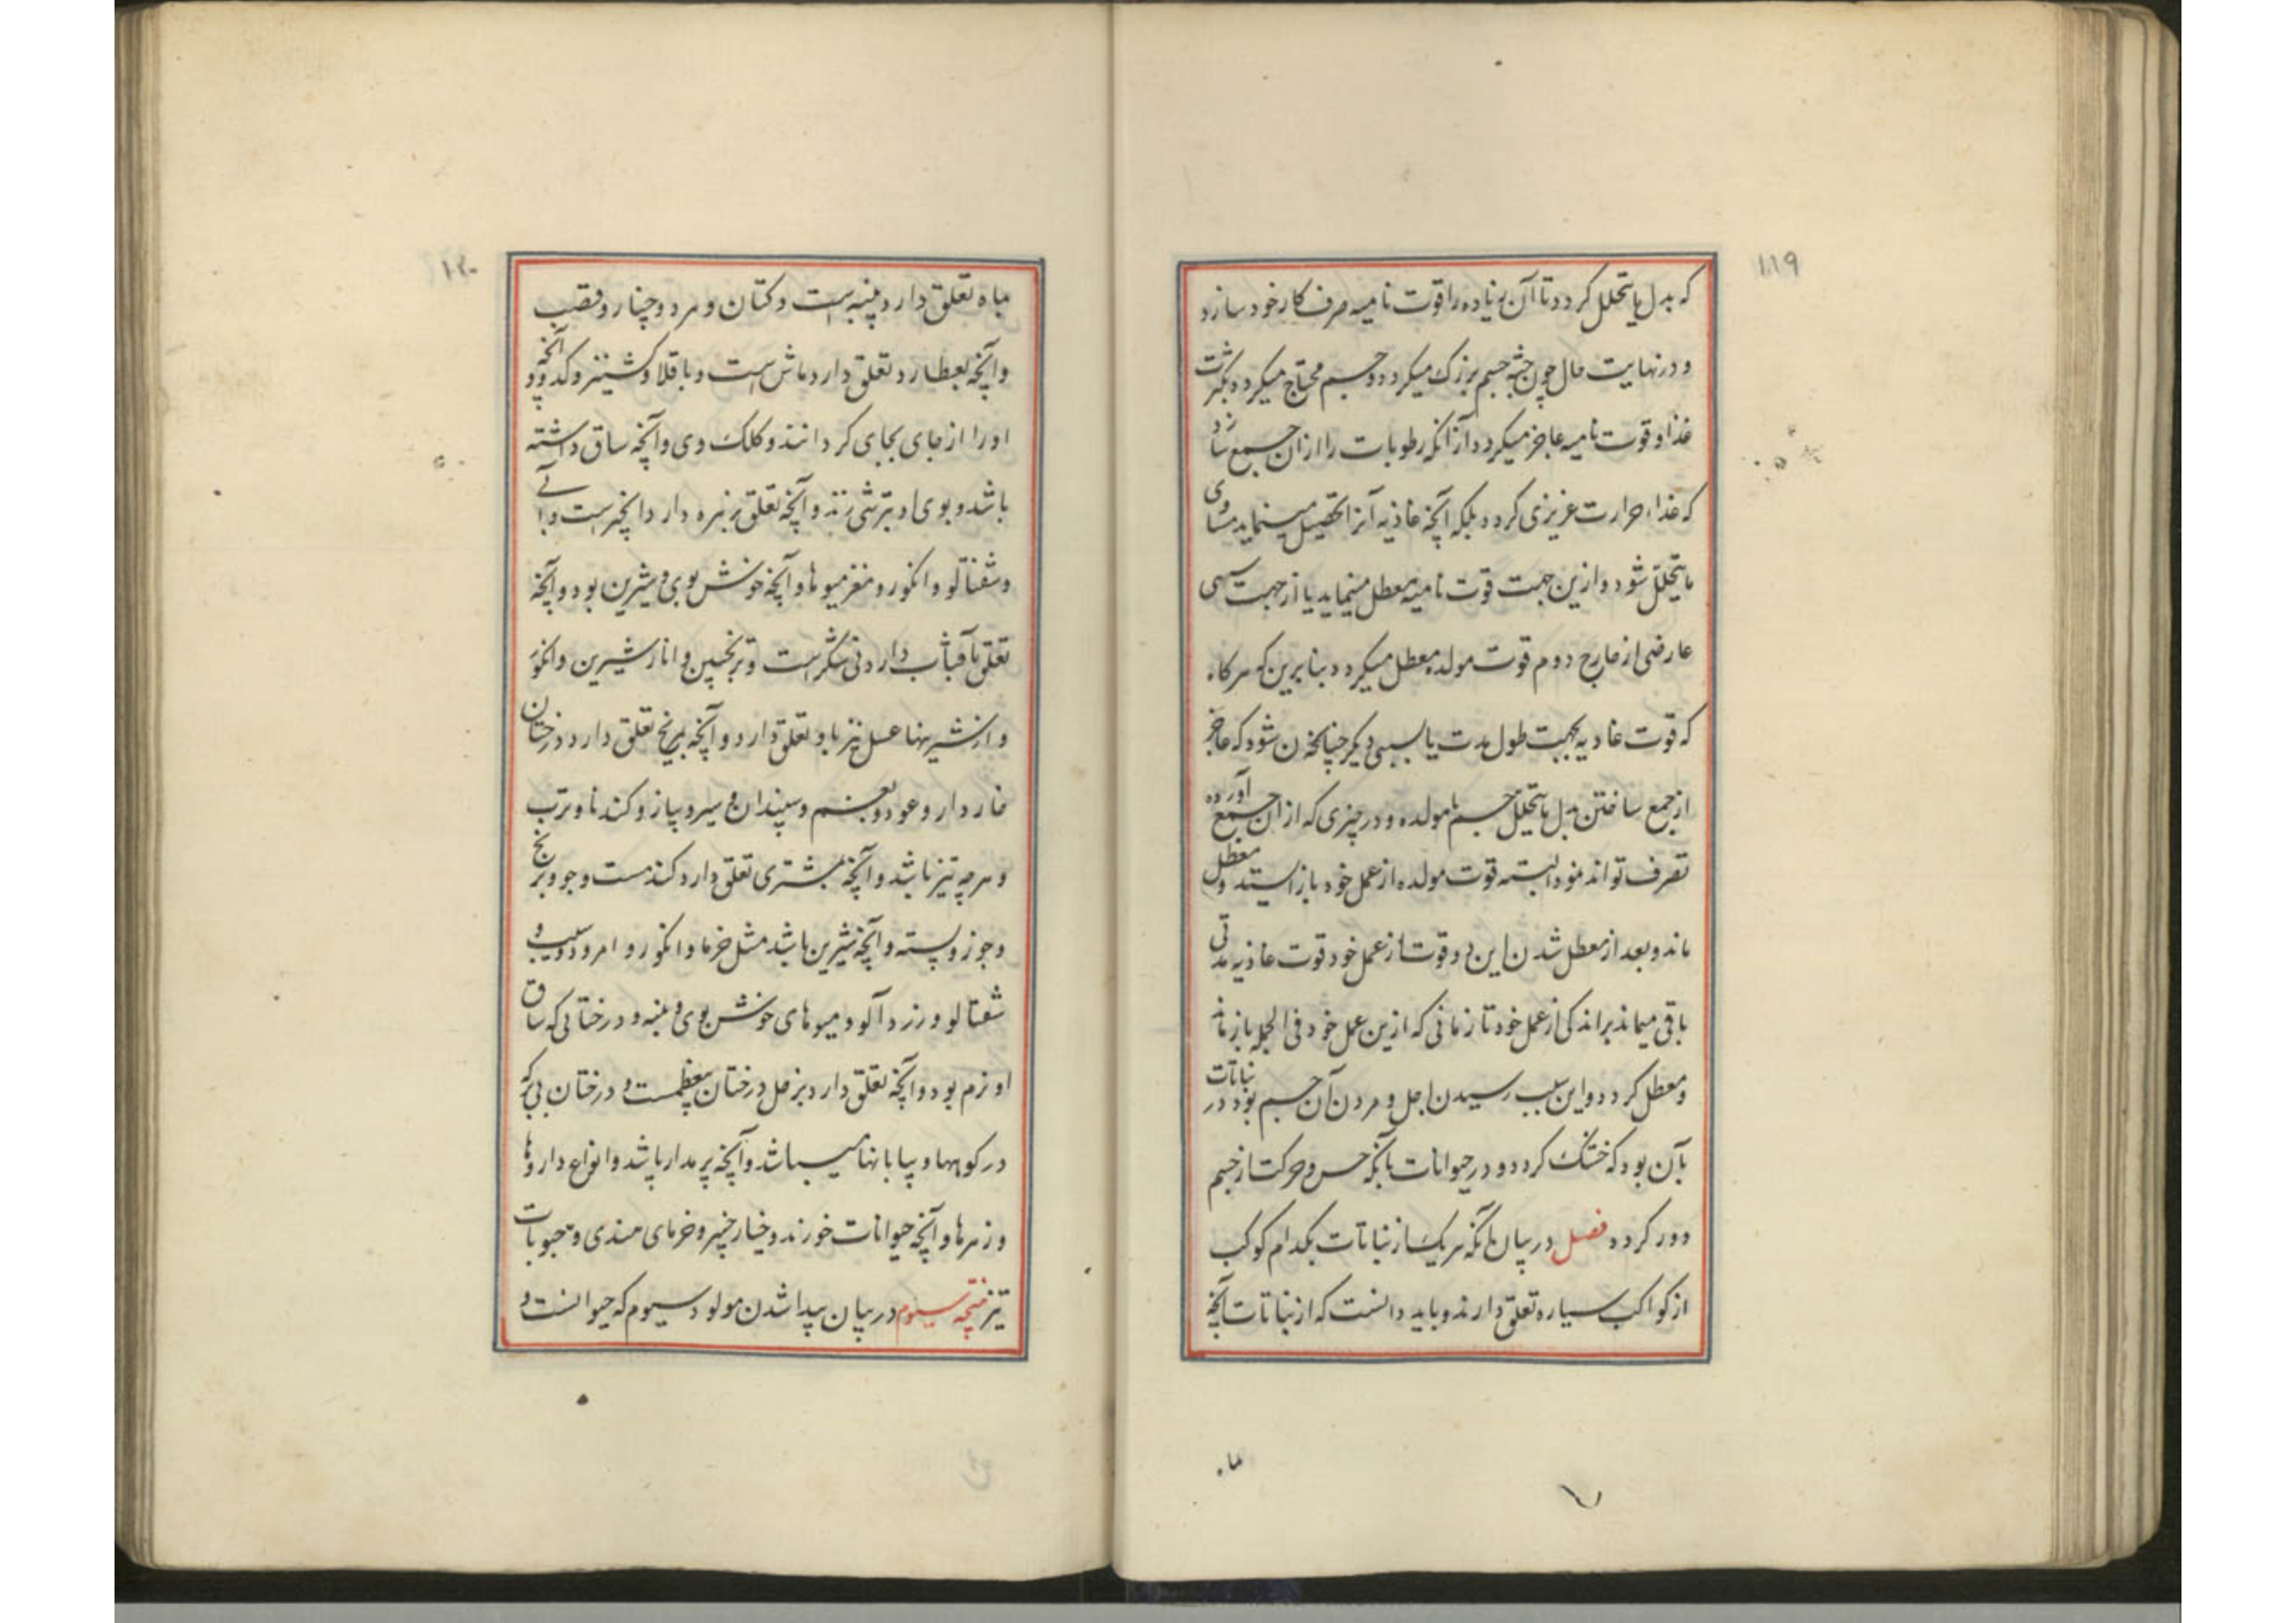 ۱۱۹
که بدل ما یتحلل کردد تا آن زیاده را قوت نامیه صرف کار خود سازد
و در نهایت حال چون جثه جسم بزرک میکردد و جسم محتاج میکردد بکثرت
غذا و قوت نامیه عاجز میکردد از آنکه رطوبات را از ان جمع سازد
که غذاء حرارت غریزی کردد بلکه آنچه غاذیه آنرا تحصیل مینماید مساوی
ما یتحلل شود و ازین جهت قوت نامیه معطل مینماید یا از جهت
عارضی از خارج دوم قوت مولده معطل میکردد بنابرین که هرکاه
که قوت غاذیه بجهت طول مدت یا بسببی دیکر چنانچه ن شود که عاجز
از جمع ساختن بدل ما یتحلل جسم تا مولده در چیزی که از ان جمع آورده
تصرف تواند نمود البته قوت مولده از عمل خود باز استد و معطل
ماند و بعد از معطل شدن این دو قوت از عمل خود قوت غاذیه مدتی
باقی میماند براندکی از عمل خود تا زمانی که ازین عمل خود فی الجمله باز ماند
و معطل کردد و این سبب رسیدن اجل و مردن آن جسم بود و در نباتات
بآن بود که خشک کردد و در حیوانات بآنکه حس و حرکت از جسم
دور کردد فصل در بیان آنکه هریک از نباتات بکدام کوکب
از کواکب سیاره تعلق دارند و باید دانست که از نباتات آنچه
ماه
۱۲۰
بماه تعلق دارد پنبه است و کتان و مرد و چنار و قصب
و آنچه بعطارد تعلق دارد ماش است و باقلا و کشنیز و کدو و آنچه
او را از جای بجای کردانند و کلک وی و آنچه ساق داشته
باشد و بوی او بترشی زند و آنچه تعلق بزهره دارد انجیر است و
و شفتالو و انکور و مغز میوها و آنچه خوش بوی و شیرین بود و آنچه
تعلق بآفتاب دارد نی شکر است و ترنجبین و انار شیرین و انکور
و از شیرینها عسل نیز باو تعلق دارد و آنچه بمریخ تعلق دارد درختان
خاردار و عود و بقم و سپندان و سیر و پیاز و کندنا و ترب
و هرچه تیز باشد و آنچه بمشتری تعلق دارد کندمست و جو و برنج
و جوز و پسته و آنچه شیرین باشد مثل خرما و انکور و امرود و سیب و
شفتالو و زردآلو و میوهای خوش بوی و پنبه و درختانی که ساق
او نرم بود و آنچه تعلق دارد بزحل درختان معظمست و درختان بی بر که
در کوهها و بیابانها میباشد و آنچه بر مدار باشد و انواع داروها
و زهرها و آنچه حیوانات خورند و خیار چنبر و خرمای هندی و حبوبات
تیز نتیجه سیوم در بیان پیدا شدن مولود سیوم که حیوانست و